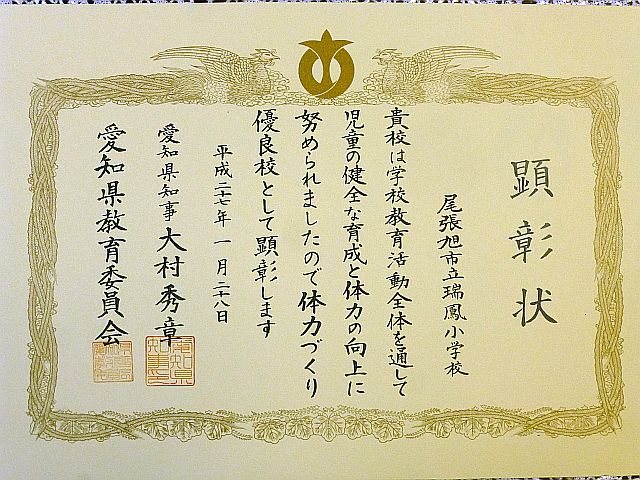 顕彰状
尾張旭市立瑞鳳小学校
貴校は学校教育活動全体を通して
児童の健全な育成と体力の向上に
努められましたので体力づくり
優良校として顕彰します
平成二十七年一月二十八日
愛知県知事 大村秀章
愛知県教育委員会